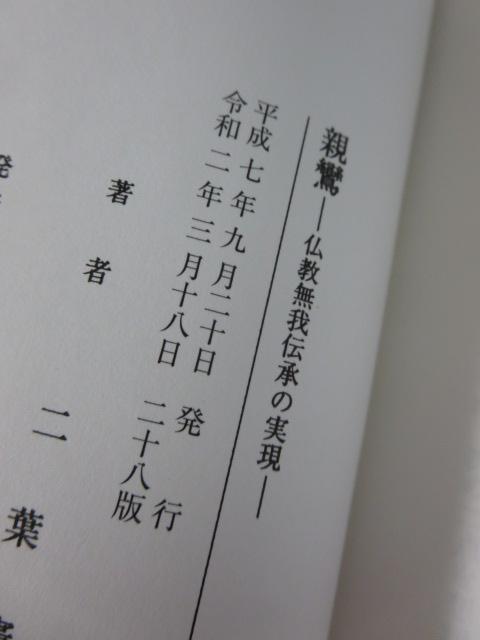 親鸞―仏教無我伝承の実現―
平成七年九月二十日 発行
令和二年三月十八日 二十八版
著者 二葉